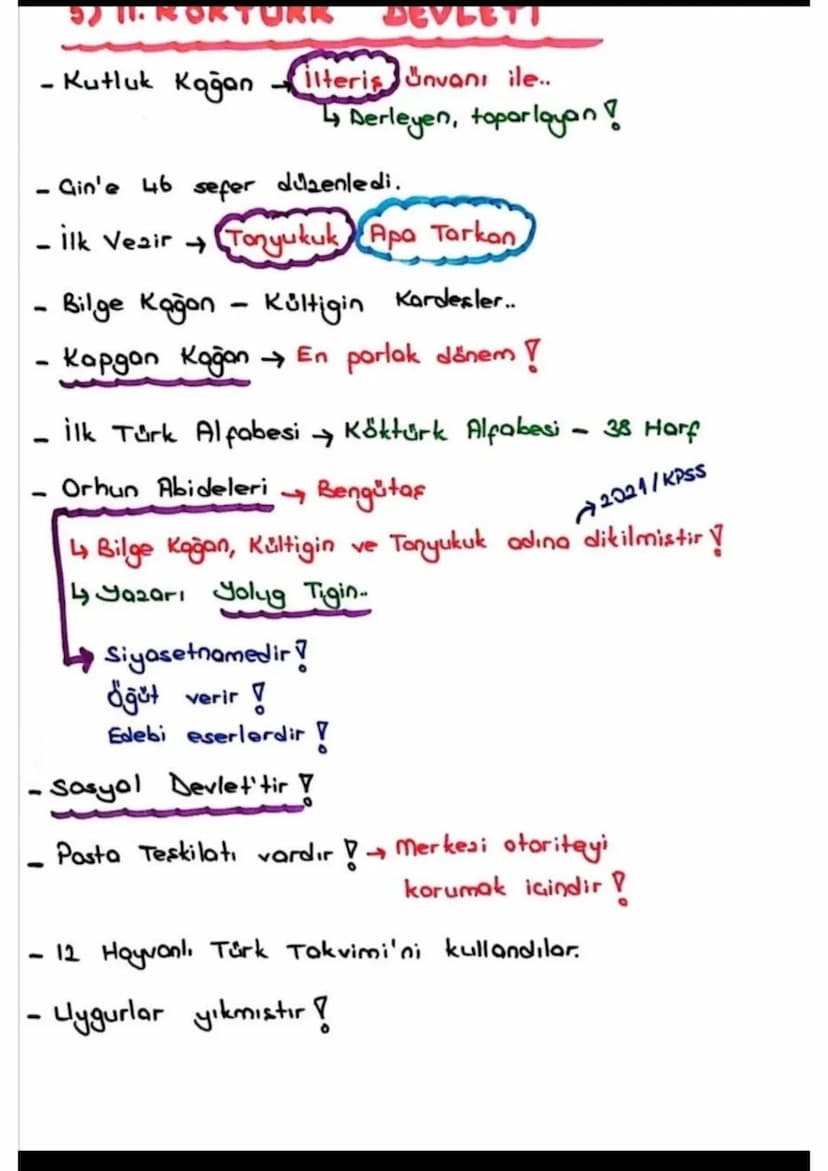 5) II. KÖKTÜRK DEVLETİ
- Kutluk Kağan → İlteriş Ünvanı ile..
↳ Derleyen, toparlayan!
- Çin'e 46 sefer düzenledi.
- İlk Vezir → Tonyukuk Apa Tarkan
- Bilge Kağan - Kültigin Kardeşler..
- Kapgan Kağan → En parlak dönem!
- İlk Türk Alfabesi → Köktürk Alfabesi - 38 Harf
- Orhun Abideleri → Bengütaş
→ 2021/KPSS
↳ Bilge Kağan, Kültigin ve Tonyukuk adına dikilmiştir!
↳ Yazarı Yolug Tigin..
→ Siyasetnamedir!
Öğüt verir!
Edebi eserlerdir!
- Sosyal Devlet'tir!
- Posta Teşkilatı vardır! → Merkezi otoriteyi
korumak içindir!
- 12 Hayvanlı Türk Takvimi'ni kullandılar.
- Uygurlar yıkmıştır!